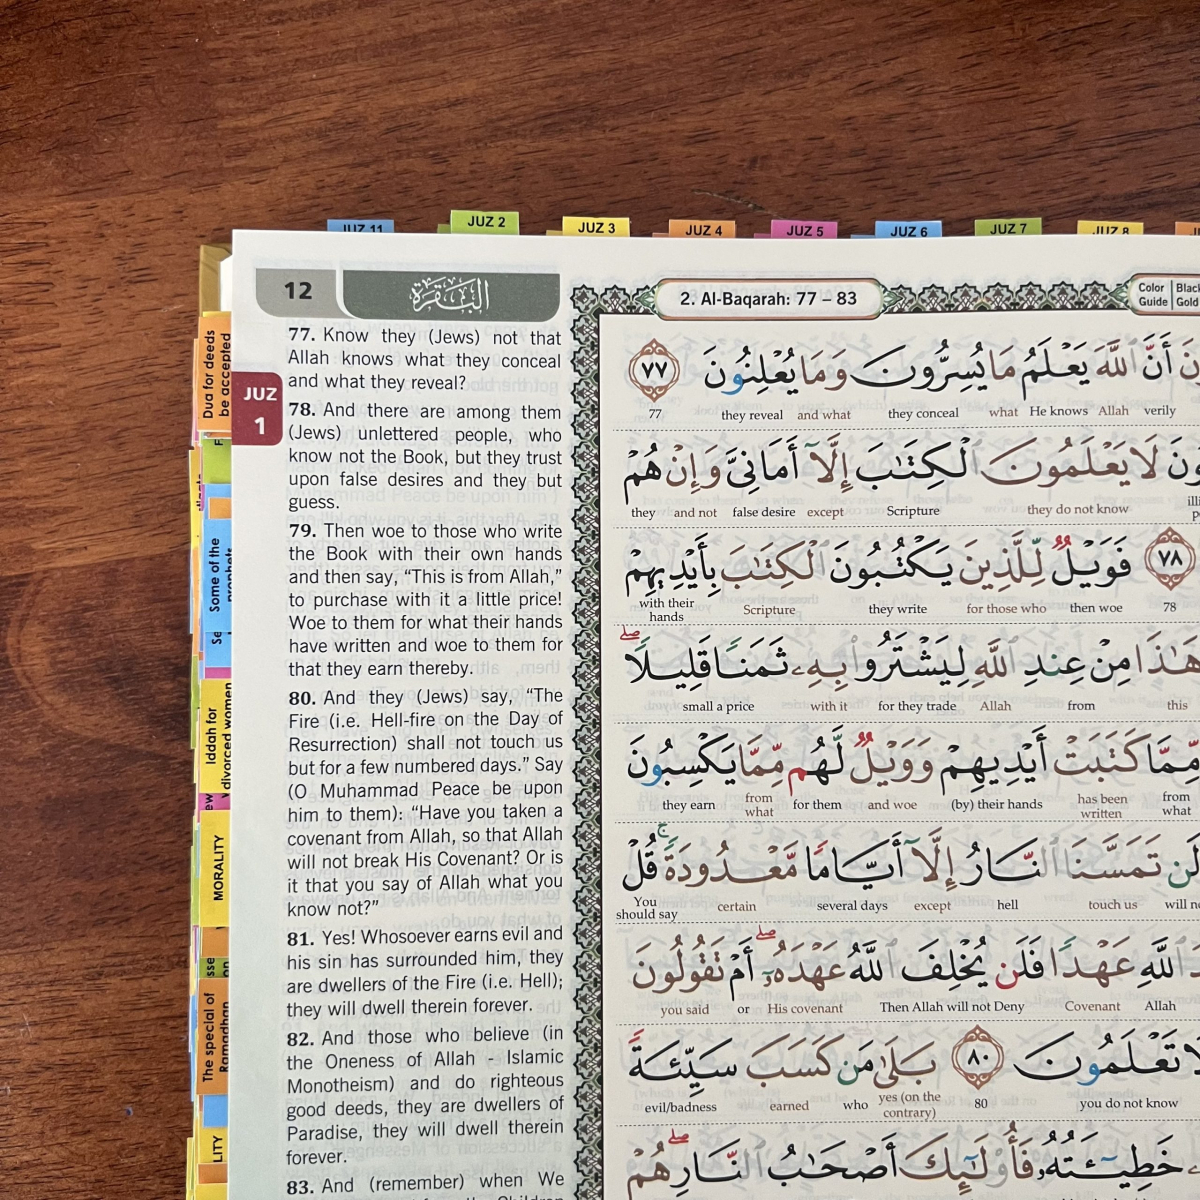 JUZ 11
JUZ 2
JUZ 3
JUZ 4
JUZ 5
JUZ 6
JUZ 7
JUZ 8
Dua for deeds
be accepted
JUZ
1
Some of the
prophets
Iddah for
divorced women
MORALITY
The special of
Ramadhan
LITY
12
البقرة
77. Know they (Jews) not that
Allah knows what they conceal
and what they reveal?
78. And there are among them
(Jews) unlettered people, who
know not the Book, but they trust
upon false desires and they but
guess.
79. Then woe to those who write
the Book with their own hands
and then say, “This is from Allah,”
to purchase with it a little price!
Woe to them for what their hands
have written and woe to them for
that they earn thereby.
80. And they (Jews) say, “The
Fire (i.e. Hell-fire on the Day of
Resurrection) shall not touch us
but for a few numbered days.” Say
(O Muhammad Peace be upon
him to them): “Have you taken a
covenant from Allah, so that Allah
will not break His Covenant? Or is
it that you say of Allah what you
know not?”
81. Yes! Whosoever earns evil and
his sin has surrounded him, they
are dwellers of the Fire (i.e. Hell);
they will dwell therein forever.
82. And those who believe (in
the Oneness of Allah - Islamic
Monotheism) and do righteous
good deeds, they are dwellers of
Paradise, they will dwell therein
forever.
83. And (remember) when We
2. Al-Baqarah: 77 – 83
Color Guide
Black
Gold
أَنَّ ٱللَّهَ يَعْلَمُ مَا يُسِرُّونَ وَمَا يُعْلِنُونَ ٧٧
77 they reveal and what they conceal what He knows Allah verily
لَا يَعْلَمُونَ ٱلْكِتَٰبَ إِلَّآ أَمَانِىَّ وَإِنْ هُمْ
they and not false desire except Scripture they do not know
٧٨ فَوَيْلٌ لِّلَّذِينَ يَكْتُبُونَ ٱلْكِتَٰبَ بِأَيْدِيهِمْ
with their hands Scripture they write for those who then woe 78
هَٰذَا مِنْ عِندِ ٱللَّهِ لِيَشْتَرُوا۟ بِهِۦ ثَمَنًا قَلِيلًا ۖ
small a price with it for they trade Allah from this
مِّمَّا كَتَبَتْ أَيْدِيهِمْ وَوَيْلٌ لَّهُم مِّمَّا يَكْسِبُونَ
they earn from what for them and woe (by) their hands has been written from what
لَن تَمَسَّنَا ٱلنَّارُ إِلَّآ أَيَّامًا مَّعْدُودَةً ۚ قُلْ
You should say certain several days except hell touch us
ٱللَّهِ عَهْدًا فَلَن يُخْلِفَ ٱللَّهُ عَهْدَهُۥٓ ۖ أَمْ تَقُولُونَ
you said or His covenant Then Allah will not Deny Covenant Allah
لَا تَعْلَمُونَ ٨٠ بَلَىٰ مَن كَسَبَ سَيِّئَةً
evil/badness earned who yes (on the contrary) 80 you do not know
خَطِيٓـَٔتُهُۥ فَأُو۟لَٰٓئِكَ أَصْحَٰبُ ٱلنَّارِ ۖ هُمْ